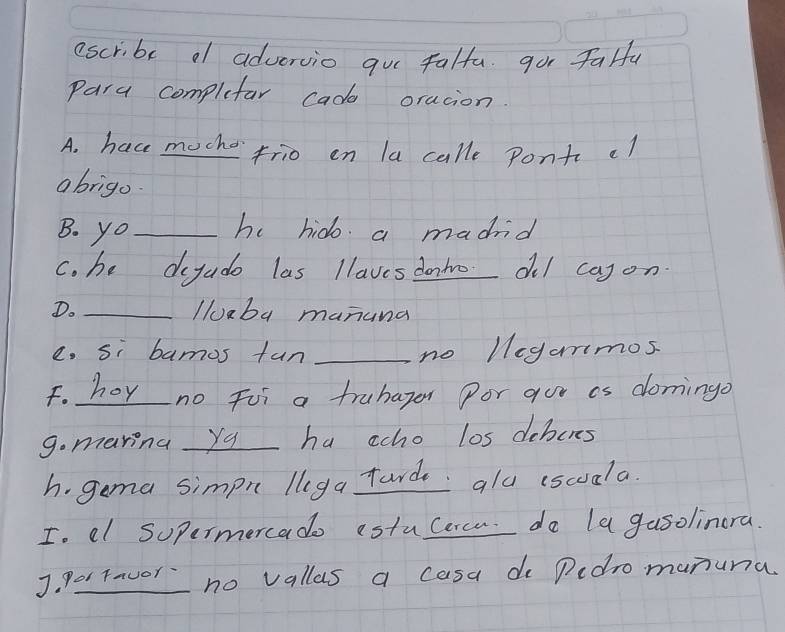 escribe el advervio que falta. que falta
para completar cada oracion.
A. hace mucho frio en la calle Ponte el
abrigo.
B. yo ____ he hido. a madrid
C. he degado las llaves dentro. del cagon.
D. ____ llueba mañana
e. si bamos tan ____ no llegaremos
F. hoy no Fui a trabajar Por que es domingo
g. marina ya ha echo los deberes
h. gema simpre llega tarde. ala escuela.
I. el supermercado esta cerca. de la gasolinera.
J. Por favor no vallas a casa de Pedro mañana